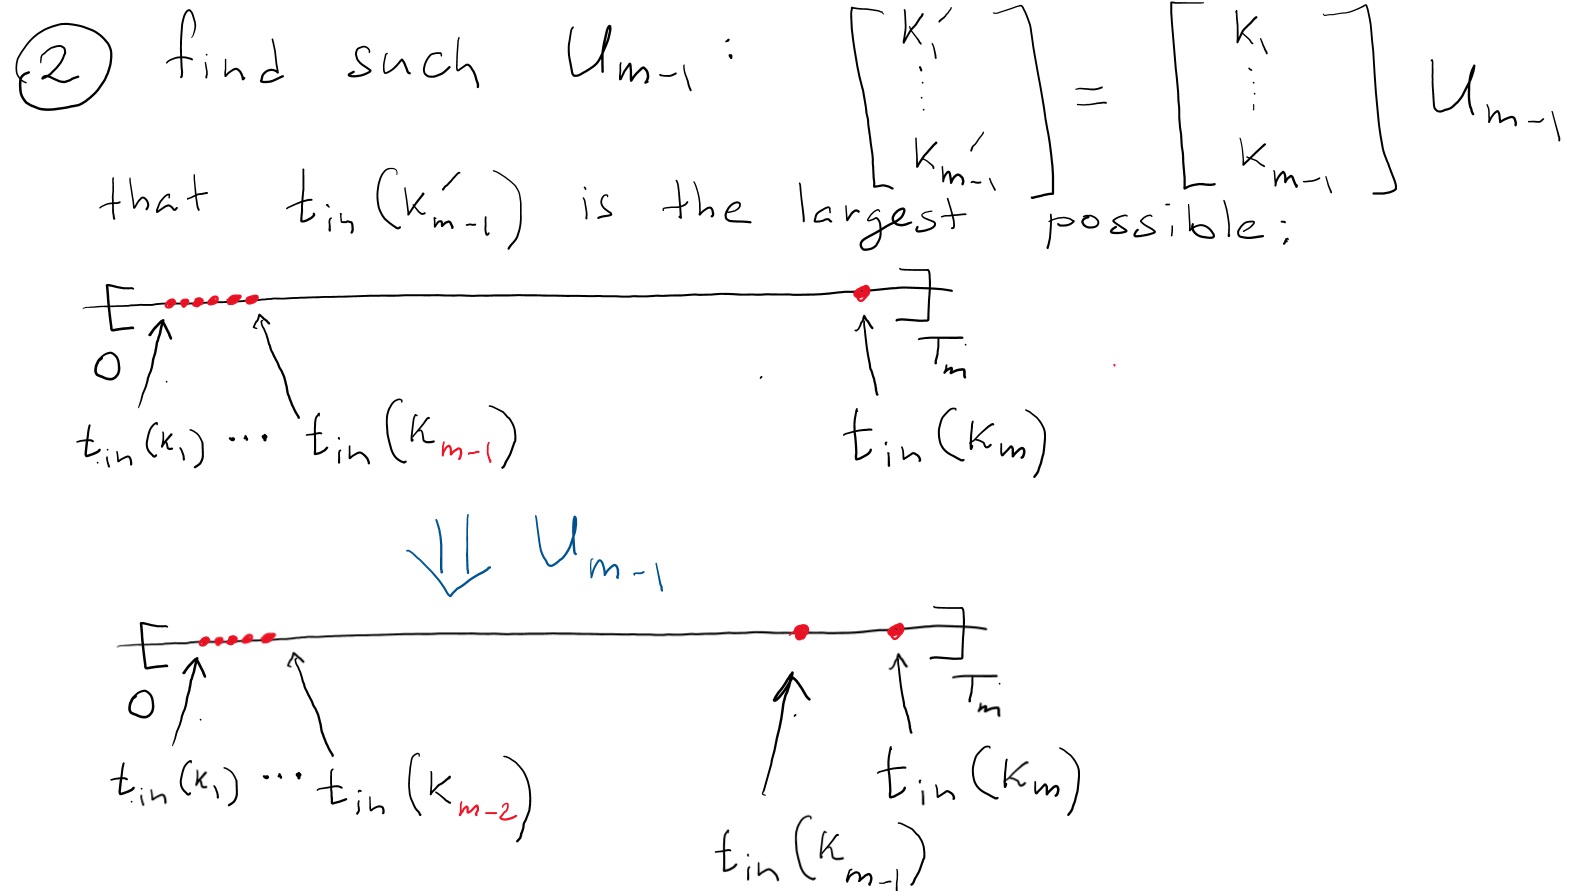 ② find such U_{m-1} : [K₁′ ⋮ K_{m-1}′] = [K₁ ⋮ K_{m-1}] U_{m-1}
that t_{in}(K′_{m-1}) is the largest possible:
[ ]
0 T_m
t_{in}(K₁) ... t_{in}(K_{m-1}) t_{in}(K_m)
⇓ U_{m-1}
[ ]
0 T_m
t_{in}(K₁) ... t_{in}(K_{m-2}) t_{in}(K_m)
t_{in}(K_{m-1})